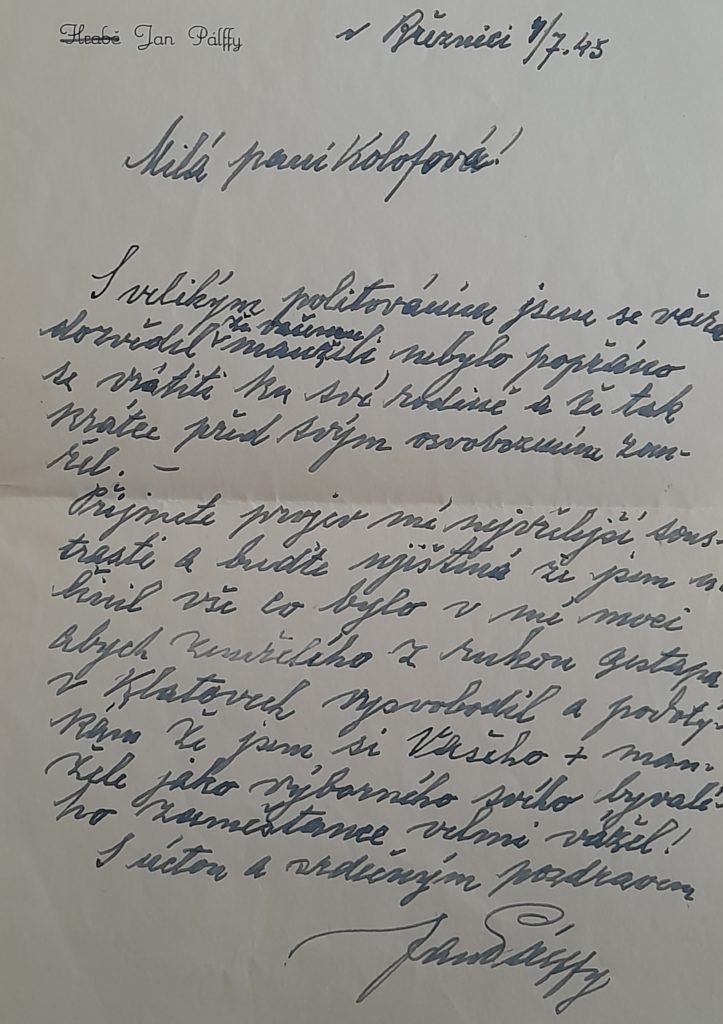 Hrabě Jan Pálffy
v Březnici 9/7.45
Milá paní Kolofová!
S velikým politováním jsem se včera
dozvěděl že vašemu
manželi nebylo popřáno
se vrátiti ku své rodině a že tak
krátce před svým osvobozením zem-
řel. –
Přijměte projev mé nejvřelejší sous-
trasti a buďte ujištěná že jsem u-
činil vše co bylo v mé moci
abych zemřelého z rukou gestapa
v Klatovech vysvobodil a podotý-
kám že jsem si Vašeho + man-
žele jako výborného svého bývalé-
ho zaměstance velmi vážil!
S úctou a srdečným pozdravem
Jan Pálffy